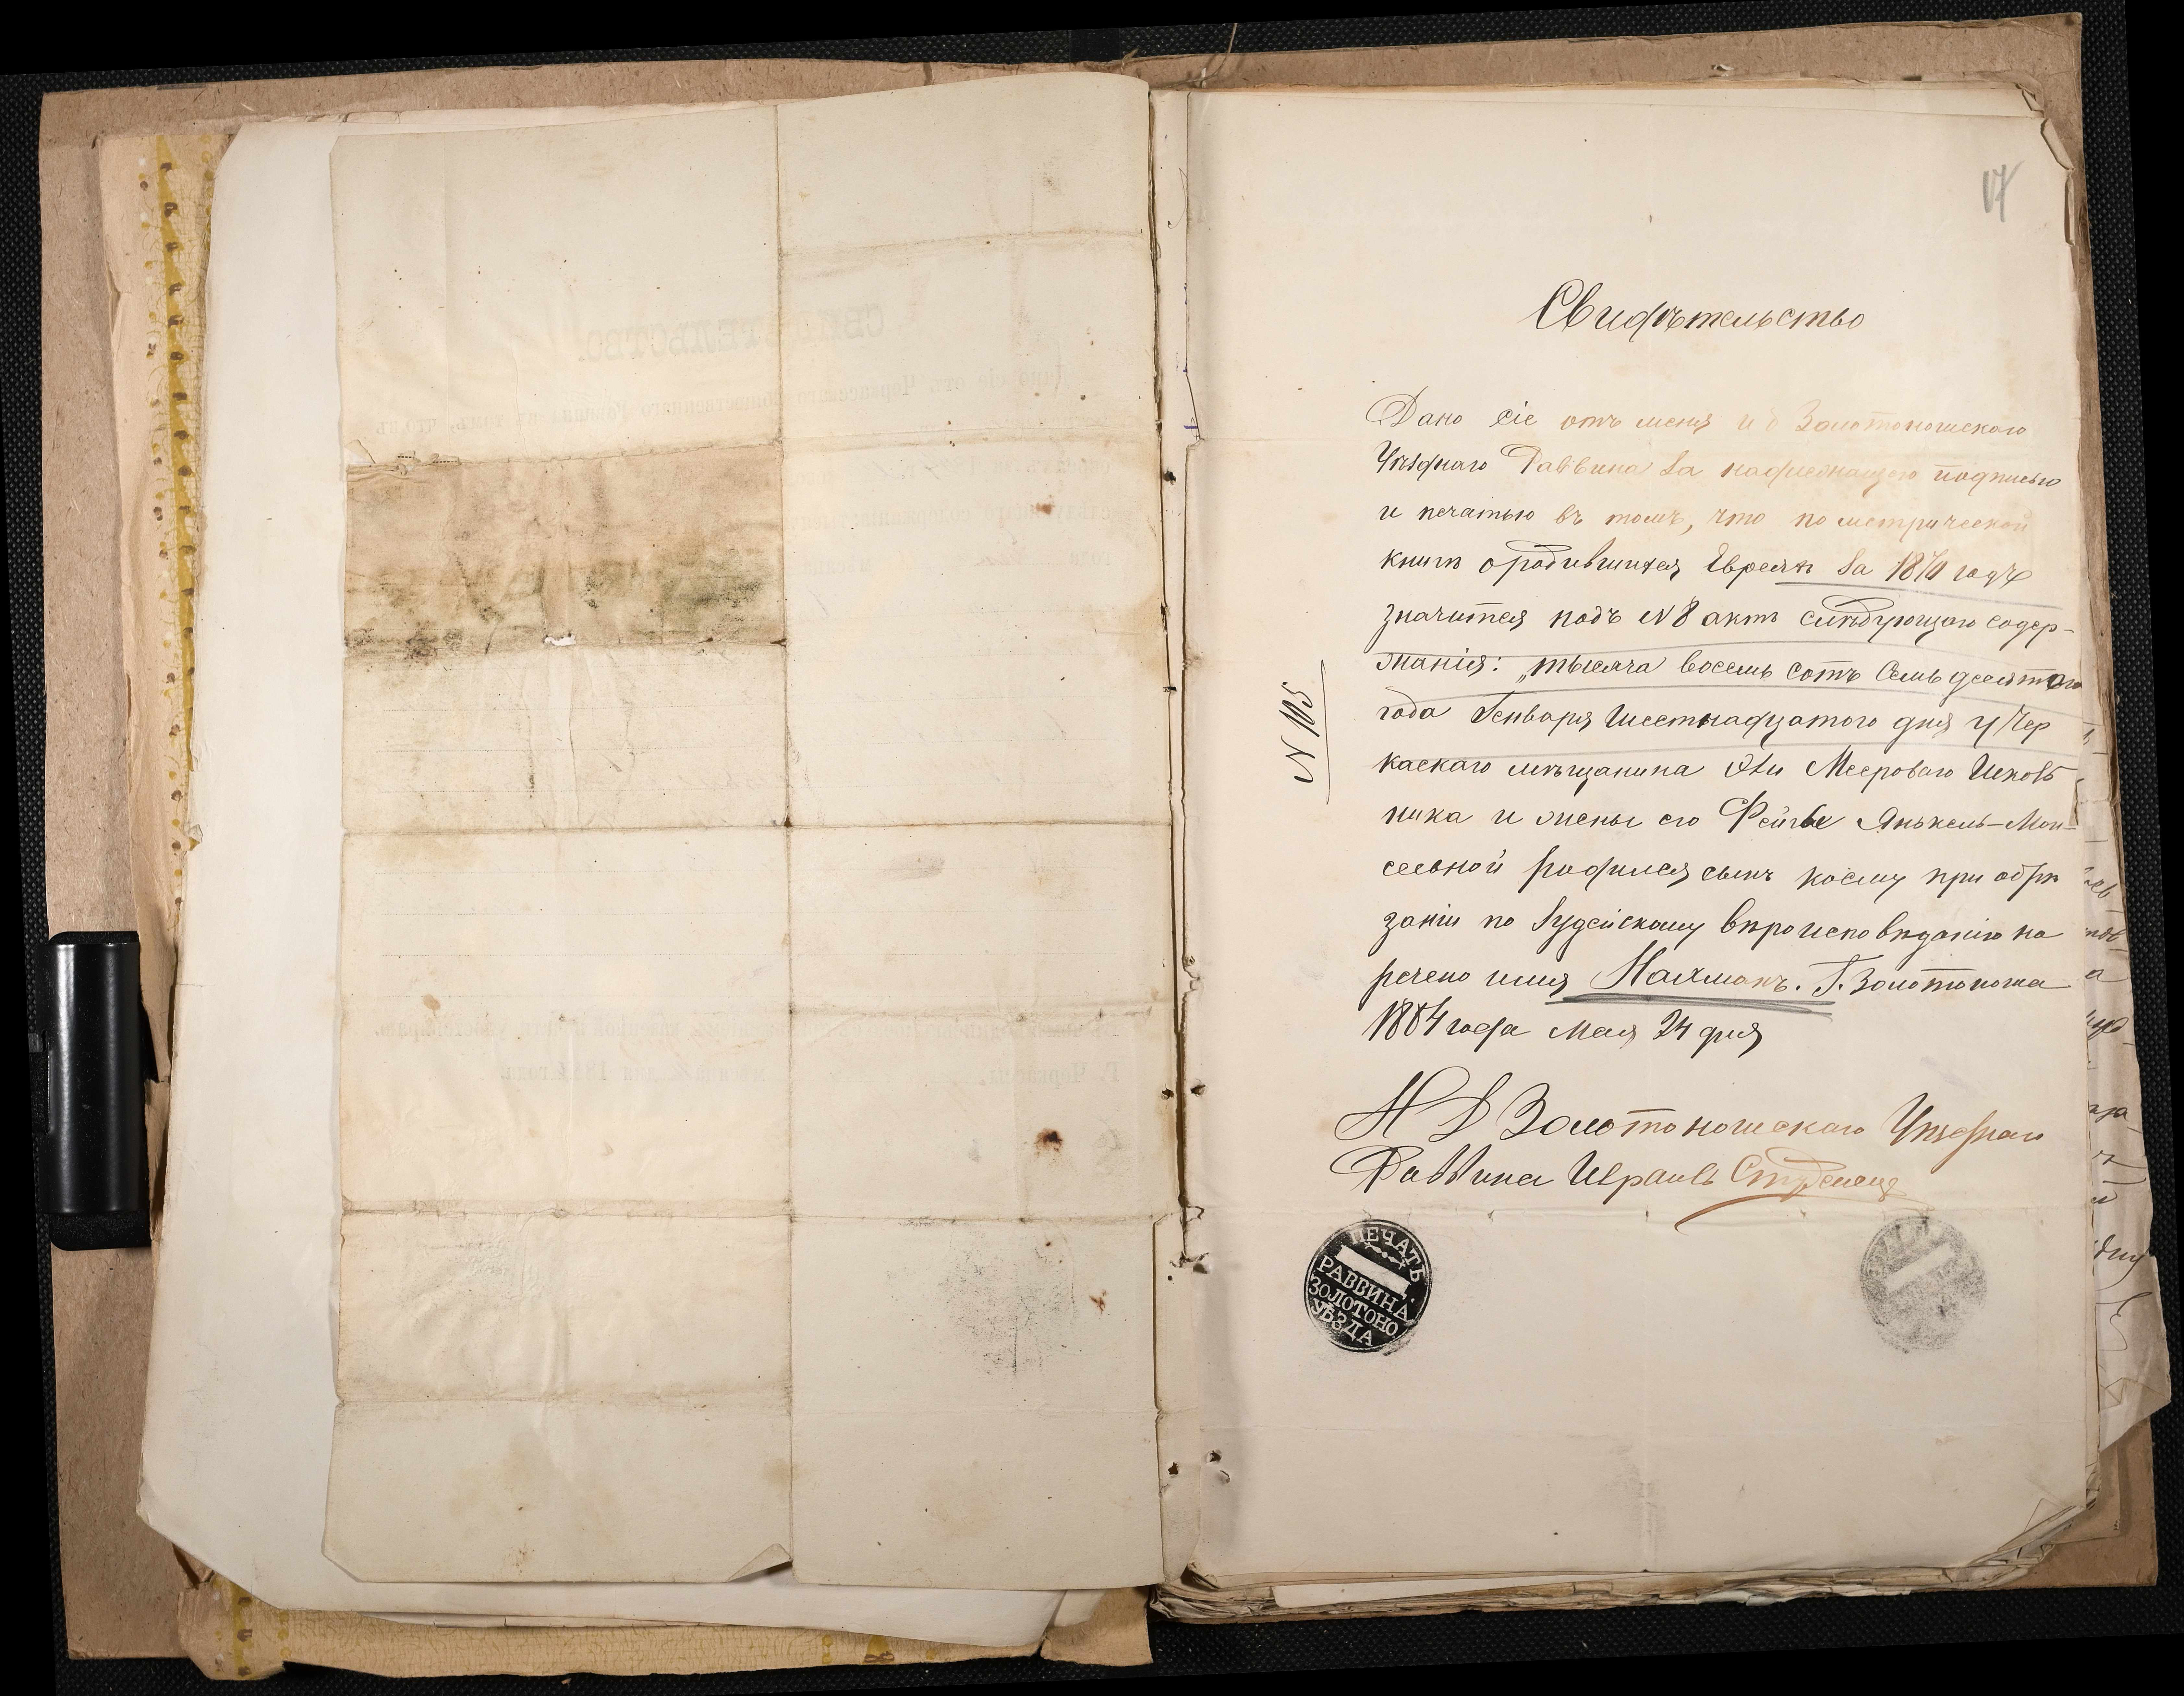 17
Свидѣтельство
Дано сіе отъ меня и д Золотоношскаго
Уѣзднаго Раввина за надлежащею подписью
и печатью въ томъ, что по метрической
книгѣ о родившихся Евреяхъ за 1870 годъ
значится подъ N 8 актъ слѣдующаго содер-
жанія: „тысяча восемь сотъ семьдесятого
года Генваря шестнадцатого дня у Чер
каскаго мѣщанина Меерова
ника и жены его Фейги Янкель-Мои-
сеевной родился сынъ коему при обрѣ
заніи по Іудейскому вѣроисповѣданію на
речено имя Нахманъ. Г. Золотоноша
1884 года Мая 24 дня
N 105
И Д Золотоношскаго Уѣзднаго
Раввина
ПЕЧАТЬ
РАВВИНА
ЗОЛОТОНО
УѢЗДА
СВИДѢТЕЛЬСТВО.
Дано сіе отъ Черкасскаго Общественнаго Раввина въ томъ, что въ
Г. Черкассы